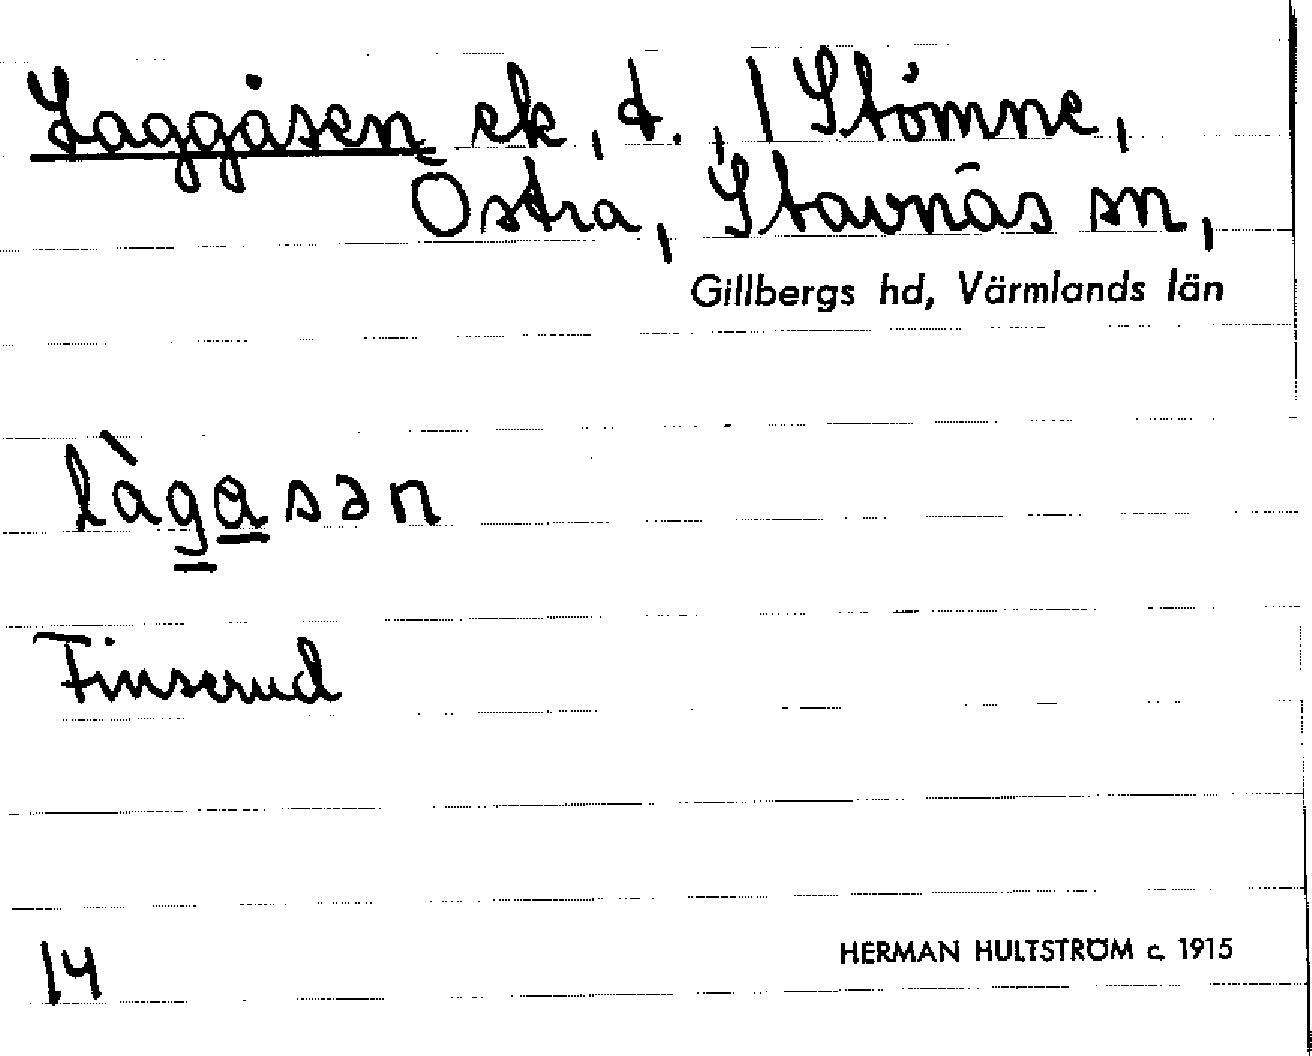 Laggåsen ek, t., / Stömne,
Östra, Stavnäs sn,
Gillbergs hd, Värmlands län
làgasən
Finserud
14
HERMAN HULTSTRÖM c. 1915